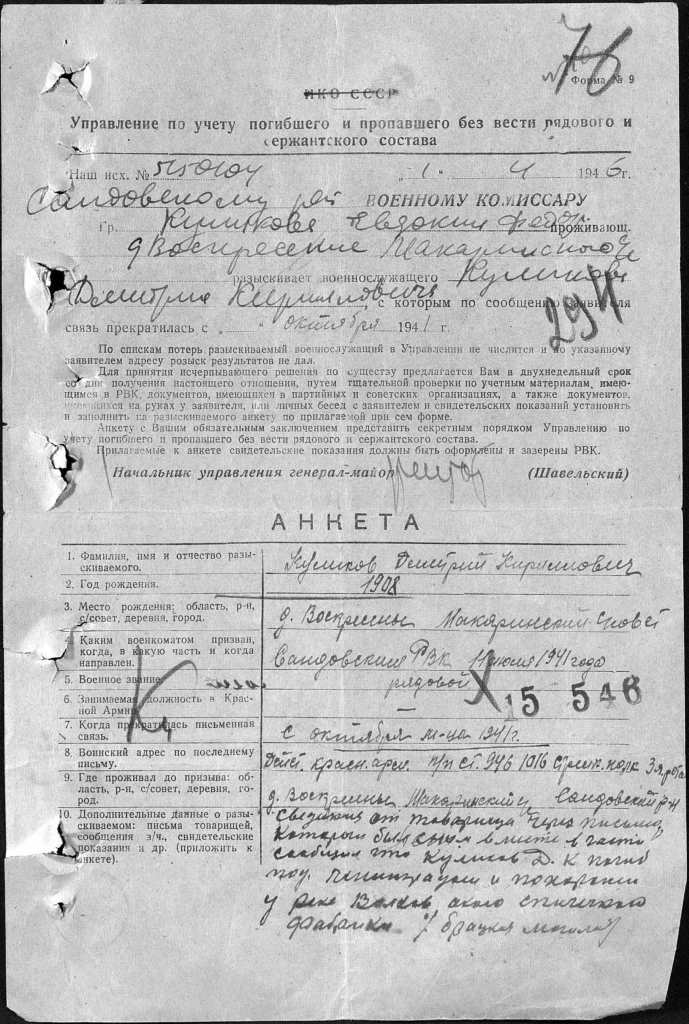 76
Форма № 9
НКО СССР
Управление по учету погибшего и пропавшего без вести рядового и
сержантского состава
Наш исх. №
1 1946г.
Сандовскому рай ВОЕННОМУ КОМИССАРУ
Гр. Куликова Евдокия Федор. проживающ.
д Воскресские Макаринского
разыскивает военнослужащего Куликова
Дмитрия Кирилловича с которым по сообщению заявителя
связь прекратилась с " " октября 1941 г.
294
По спискам потерь разыскиваемый военнослужащий в Управлении не числится и по указанному
заявителем адресу розыск результатов не дал.
Для принятия исчерпывающего решения по существу предлагается Вам в двухнедельный срок
со дня получения настоящего отношения, путем тщательной проверки по учетным материалам, имею-
щимся в РВК, документов, имеющихся в партийных и советских организациях, а также документов,
имеющихся на руках у заявителя, или личных бесед с заявителем и свидетельских показаний установить
и заполнить на разыскиваемого анкету по прилагаемой при сем форме.
Анкету с Вашим обязательным заключением представить секретным порядком Управлению по
учету погибшего и пропавшего без вести рядового и сержантского состава.
Прилагаемые к анкете свидетельские показания должны быть оформлены и заверены РВК.
Начальник управления генерал-майор (Шавельский)
АНКЕТА
1. Фамилия, имя и отчество разы-
скиваемого.
Куликов Дмитрий Кириллович
2. Год рождения.
1908
3. Место рождения: область, р-н,
с/совет, деревня, город.
д. Воскресны Макаринский с/совет
4. Каким военкоматом призван,
когда, в какую часть и когда
направлен.
Сандовским РВК 11 июля 1941 года
5. Военное звание.
рядовой
15 546
6. Занимаемая должность в Крас-
ной Армии.
—
7. Когда прекратилась письменная
связь.
с октября м-ца 1941 г.
8. Воинский адрес по последнему
письму.
Дейст. красн. арм. п/п ст. 946 1016 стрелк. полк 3я рота
9. Где проживал до призыва: об-
ласть, р-н, с/совет, деревня, го-
род.
д. Воскресны Макаринский Сандовский р-н
10. Дополнительные данные о разы-
скиваемом: письма товарищей,
сообщения з/ч., свидетельские
показания и др. (приложить к
анкете).
Сведения от товарища через письмо,
который был с ним вместе в части
сообщил что Куликов Д. К погиб
под Ленинградом и похоронен
у реки Волхов около спичечного
фабрики / брацкая могила /